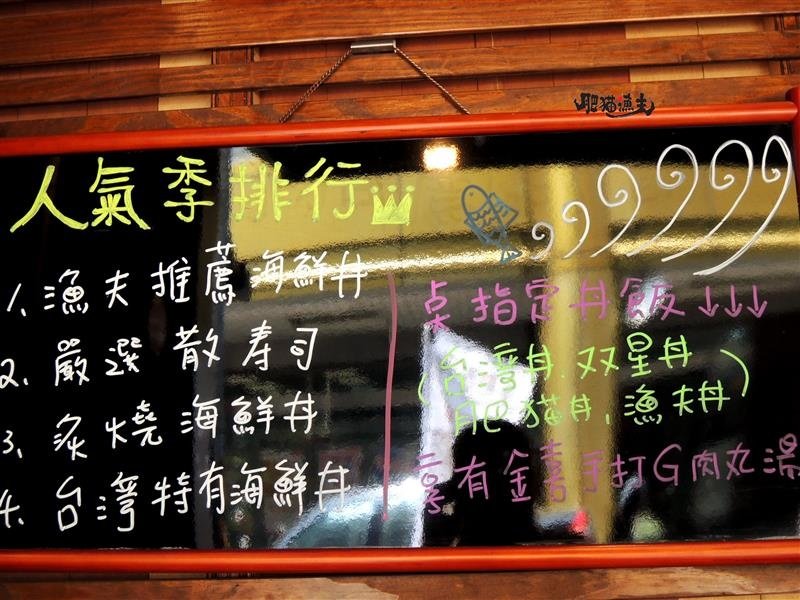 肥猫漁夫
人氣季排行
1. 漁夫推薦海鮮丼
2. 嚴選散寿司
3. 炙燒海鮮丼
4. 台灣特有海鮮丼
桌指定丼飯↓↓↓
(台灣丼.双星丼
肥猫丼,漁夫丼)
享有金喜手打G肉丸湯